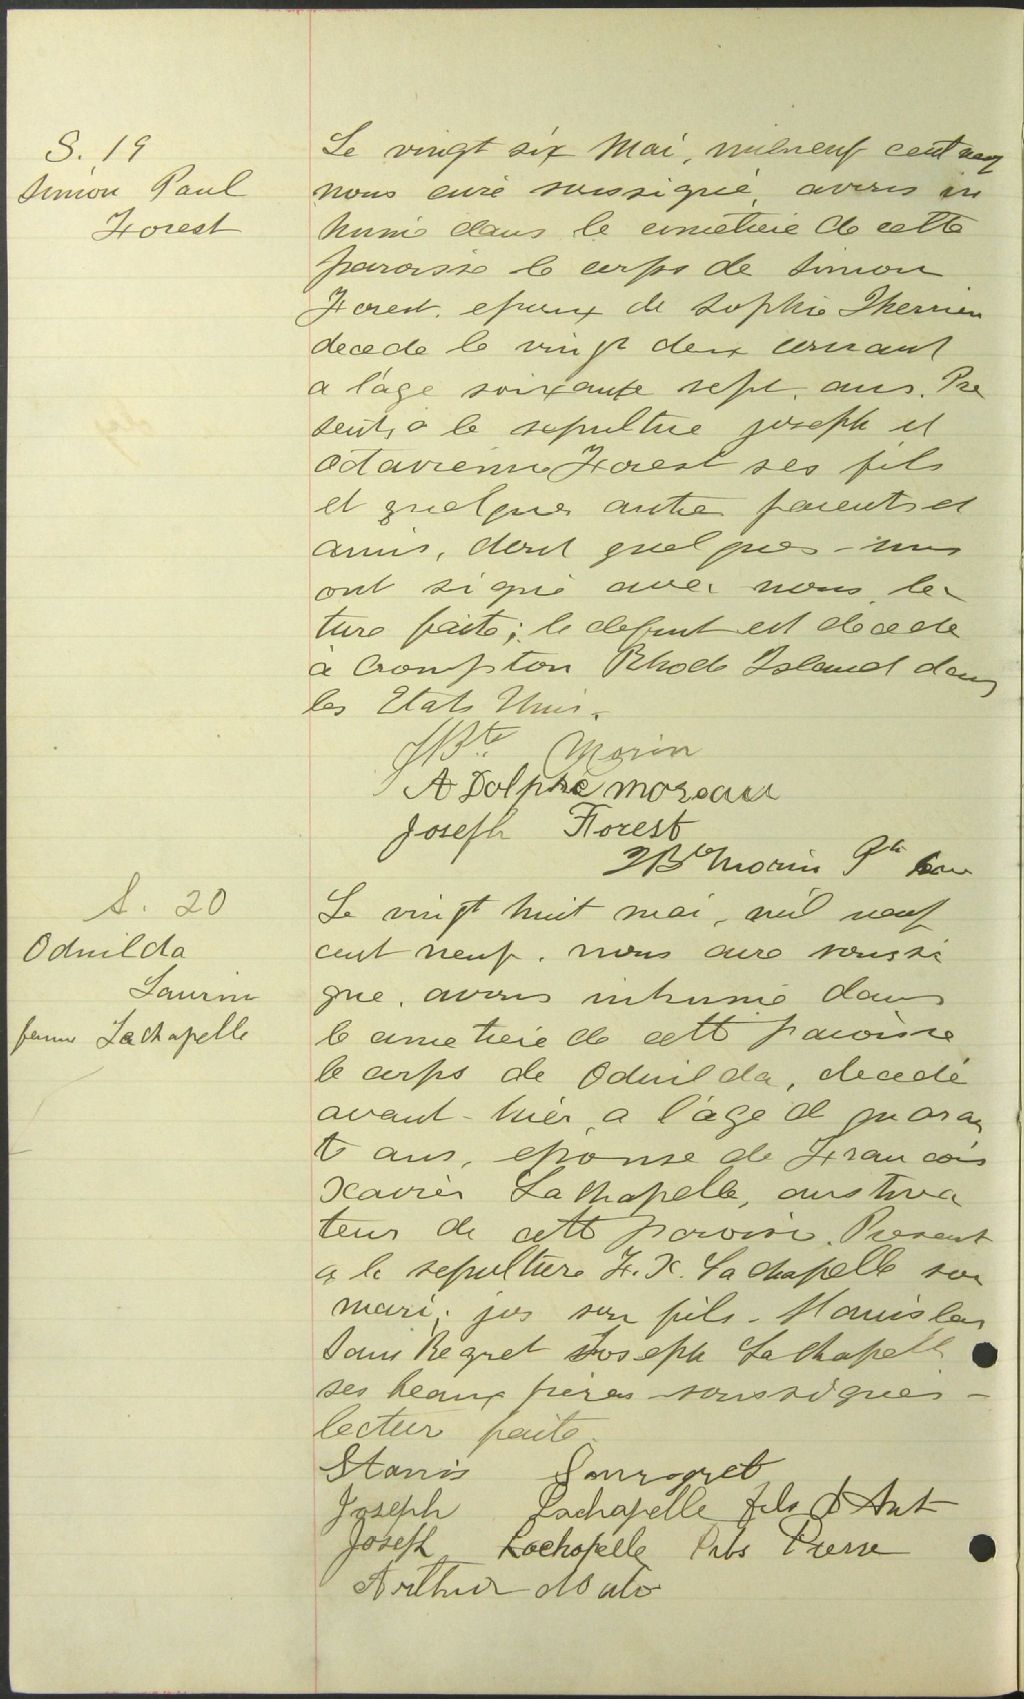 S. 19
Simon Paul
Forest
Le vingt six Mai, milneuf cent neuf
nous curé soussigné, avons in
humé dans le cimetiere de cette
paroisse le corps de Simon
Forest. epoux de Sophie Therrien
decede le vingt deux courant
a l'age soixante sept. ans. Pre
sents, a la sepulture joseph et
Octavienne Forest ses fils
et quelques autres parents et
amis, dont quelques-uns
ont signé avec nous, lec
ture faite; le defunt est decede
à Crompton Rhode Island dans
les Etats Unis.
JBte Morin
ADolphe moreau
Joseph Forest
JBte Morin Ptre
S. 20
Odnilda
Laurin
femme Lachapelle
Le vingt huit mai, mil neuf
cent neuf. nous cure soussi
gne. avons inhumé dans
le cimetiere de cette paroisse
le corps de Odnilda, decedé
avant-hier, a l'age de quaran
te ans, epouse de Francois
Xavier Lachapelle, cultiva
teur de cette paroisse. Present
a la sepulture F.X. Lachapelle son
mari; jos son fils. Stanislas
SansRegret Joseph Lachapelle
ses beaux freres soussignés-
lecture faite.
Stanis Sansregret
Joseph Lachapelle fils d Ant
Joseph Lachapelle Pierre
Arthur